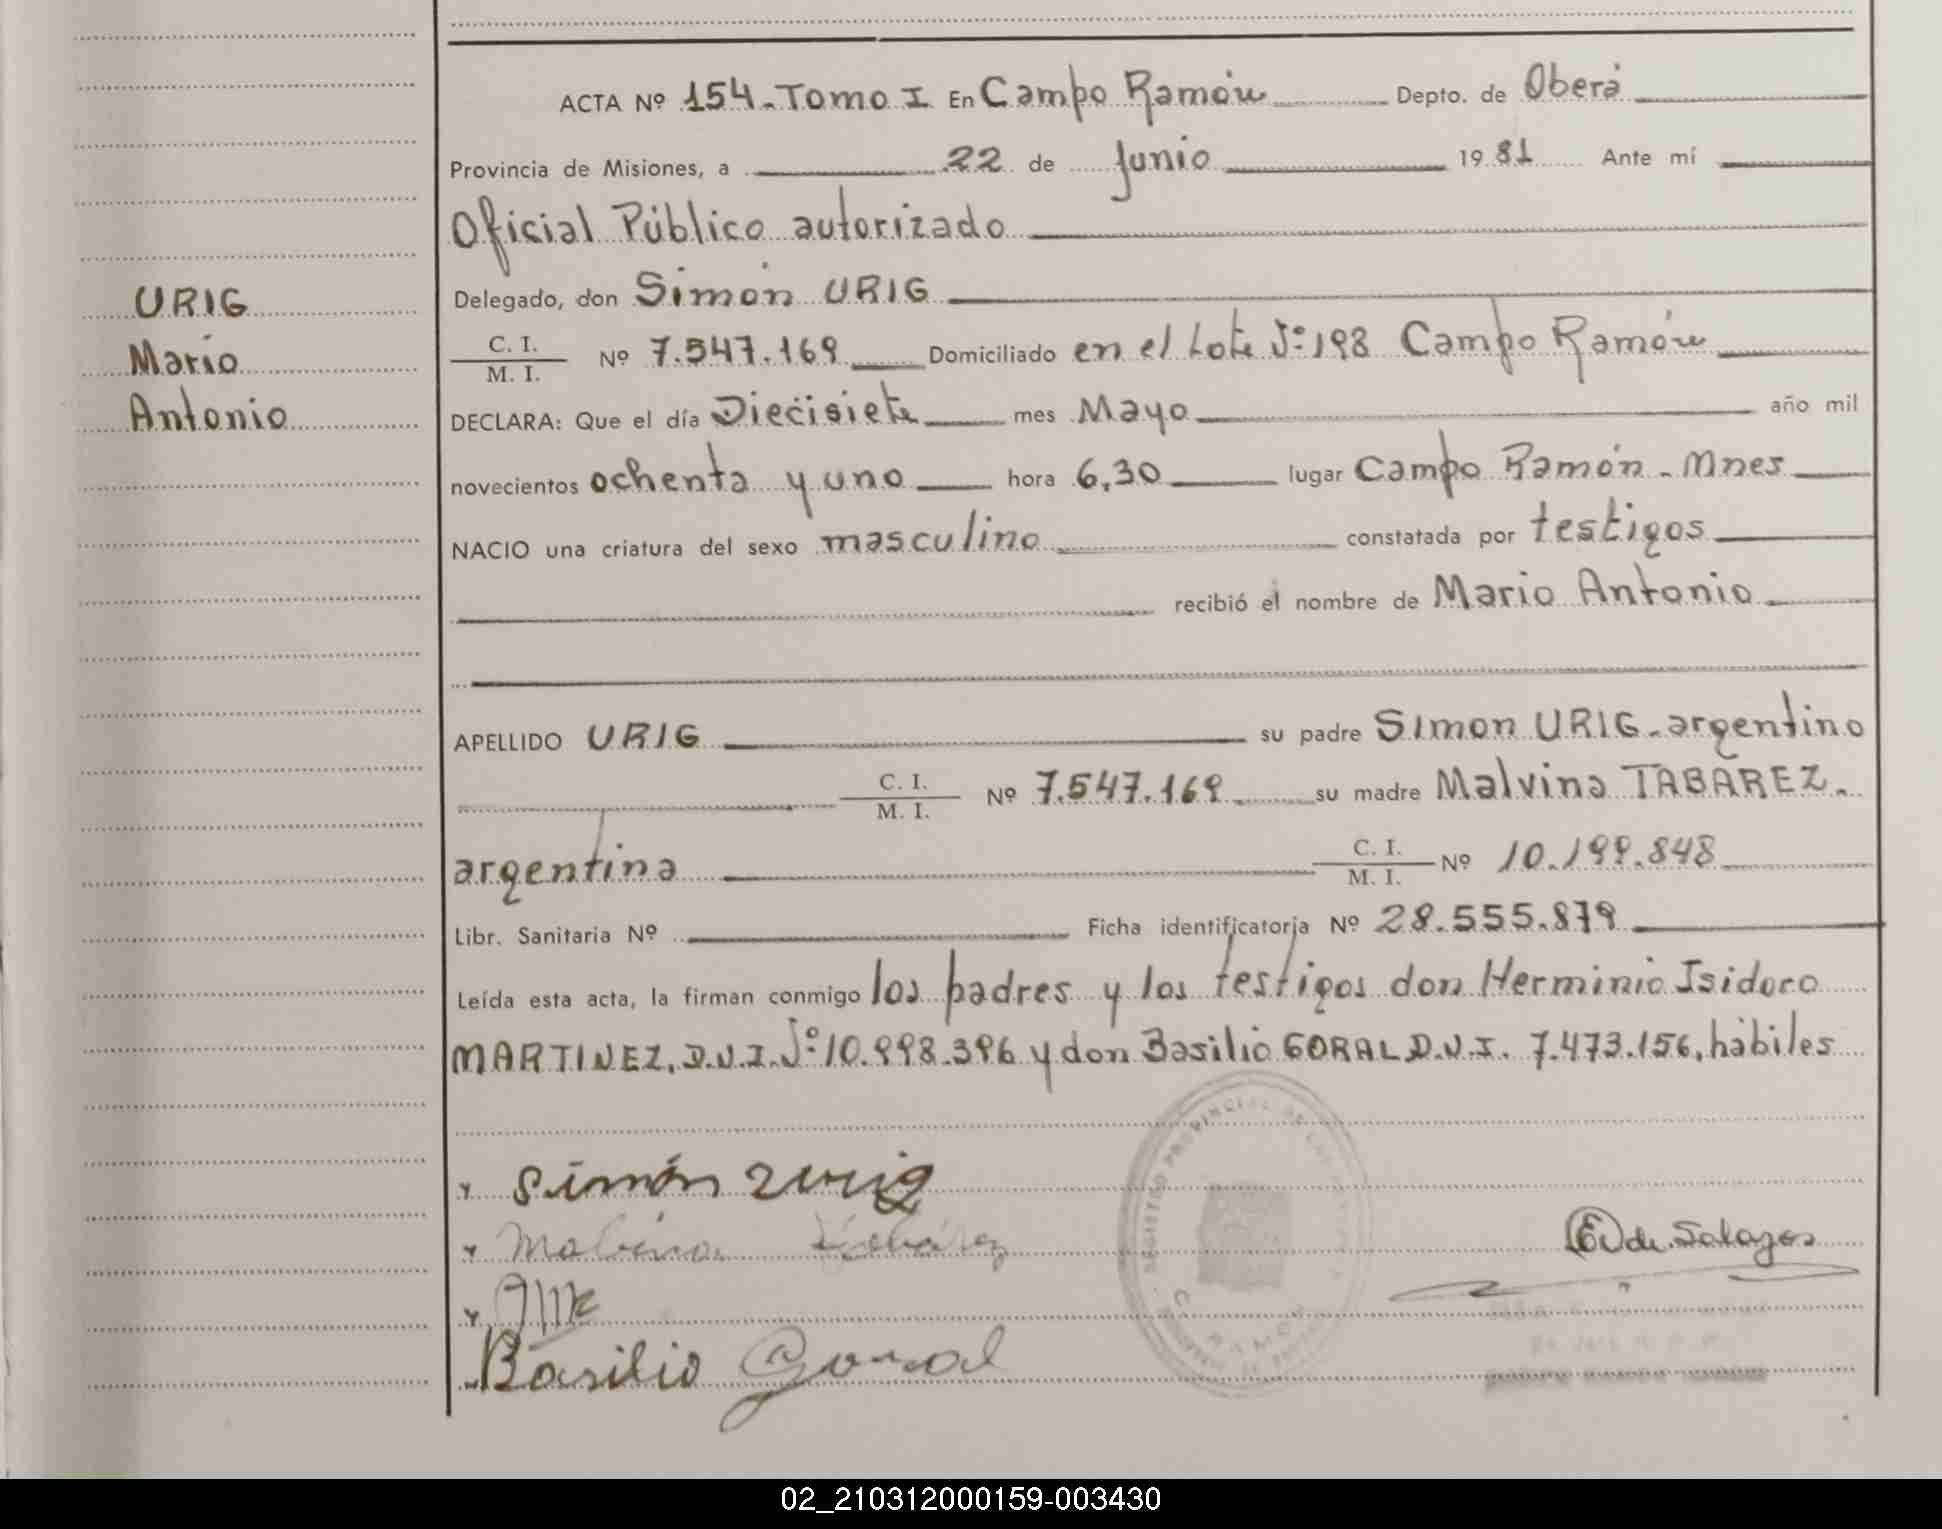 ACTA Nº 154. Tomo I En Campo Ramón Depto. de Oberá
Provincia de Misiones, a 22 de Junio 1981 Ante mí
Oficial Público autorizado
URIG
Mario
Antonio
Delegado, don Simón URIG
C. I.
M. I. Nº 7.547.169 Domiciliado en el Lote Nº 198 Campo Ramón
DECLARA: Que el día Diecisiete mes Mayo año mil
novecientos ochenta y uno hora 6,30 lugar Campo Ramón - Mnes
NACIO una criatura del sexo masculino constatada por testigos
recibió el nombre de Mario Antonio
APELLIDO URIG su padre Simón URIG - argentino
C. I.
M. I. Nº 7.547.169 su madre Malvina TABAREZ.
argentina C. I.
M. I. Nº 10.199.848
Libr. Sanitaria Nº Ficha identificatoria Nº 28.555.879
Leída esta acta, la firman conmigo los padres y los testigos don Herminio Isidoro
MARTINEZ, D.N.I. Nº 10.998.396 y don Basilio GORAL D.N.I. 7.473.156, hábiles
REGISTRO PROVINCIAL DE
C. RAMON
Simón Urig
Malvina Tabárez
E de Salazar
Basilio Goral
02_210312000159-003430